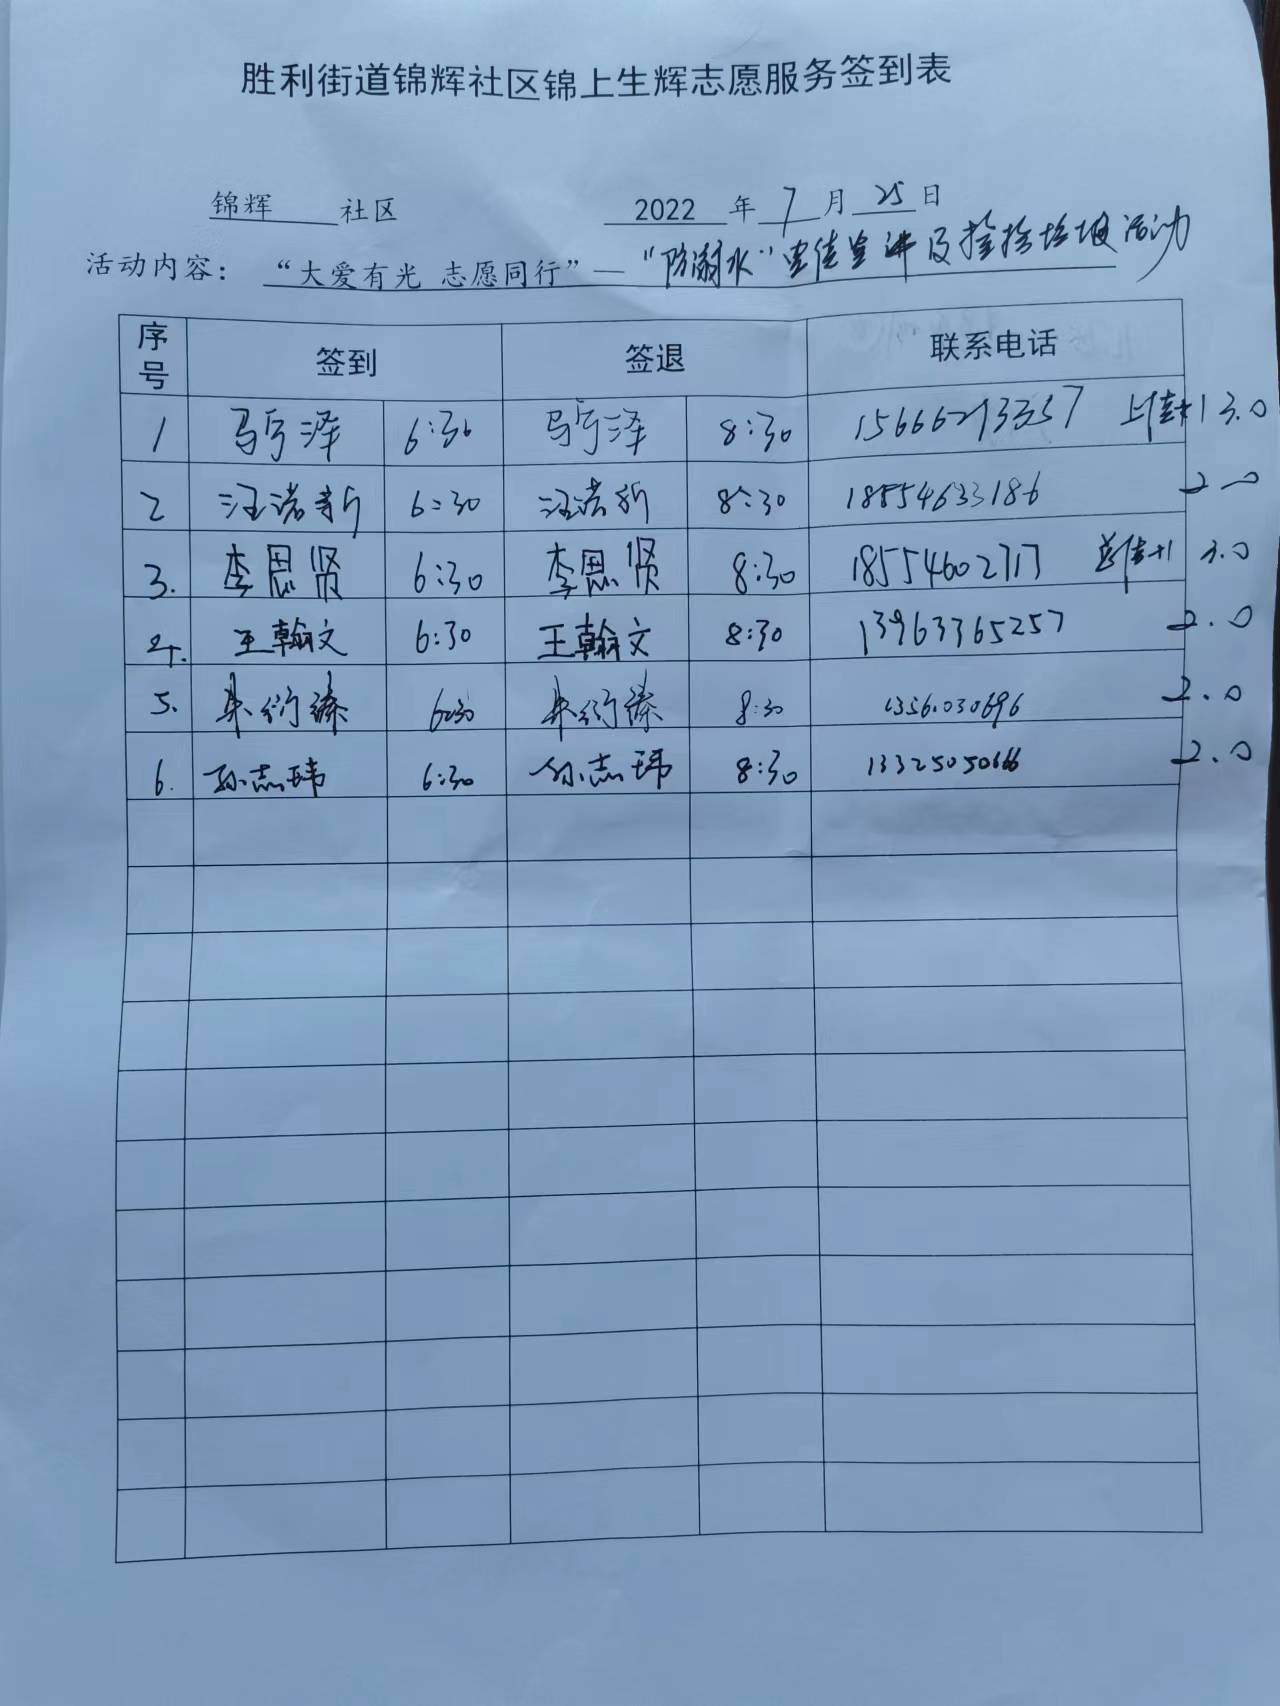 胜利街道锦辉社区锦上生辉志愿服务签到表
锦辉 社区 2022 年 7 月 25 日
活动内容：“大爱有光 志愿同行”—“防溺水”宣传宣讲及捡拾垃圾活动
序号 签到 签退 联系电话
1 马宁泽 6:30 马宁泽 8:30 15666293357 +1 3.0
2 汪诺新 6:30 汪诺新 8:30 18554633186 2.0
3. 李思贤 6:30 李思贤 8:30 18554602717 +1 3.0
4. 王翰文 6:30 王翰文 8:30 13963365257 2.0
5. 朱衍臻 6:30 朱衍臻 8:30 13561030696 2.0
6. 孙志玮 6:30 孙志玮 8:30 13325050666 2.0